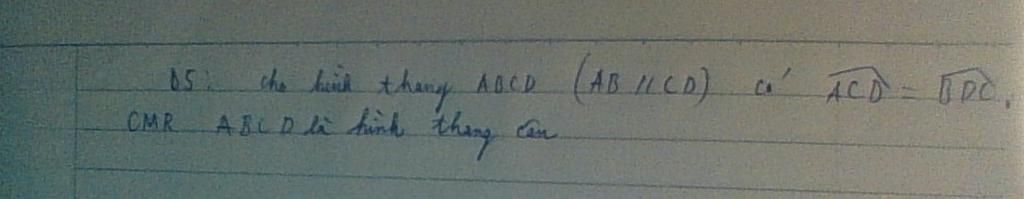 B5: cho hình thang ABCD (AB // CD) có ACD = BDC.
CMR ABCD là hình thang cân